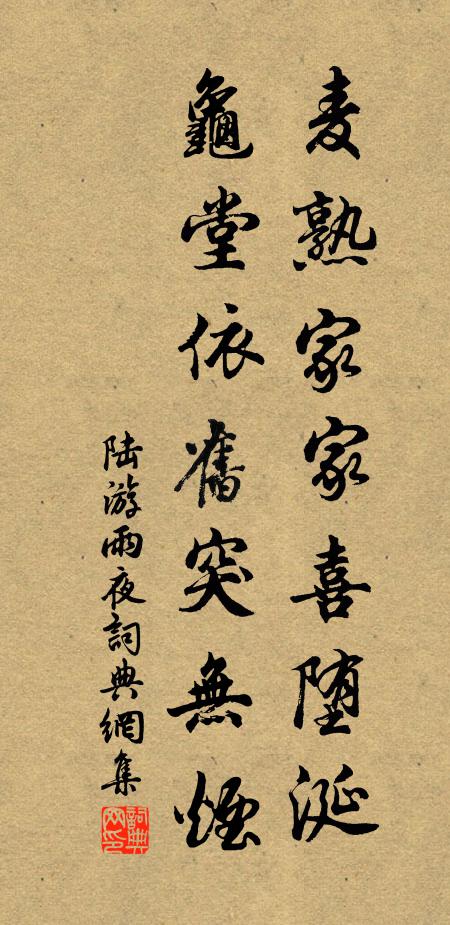 麦熟家家喜堕涎
龜堂依舊突無煙
陆游雨夜詞典網集
詞典網印